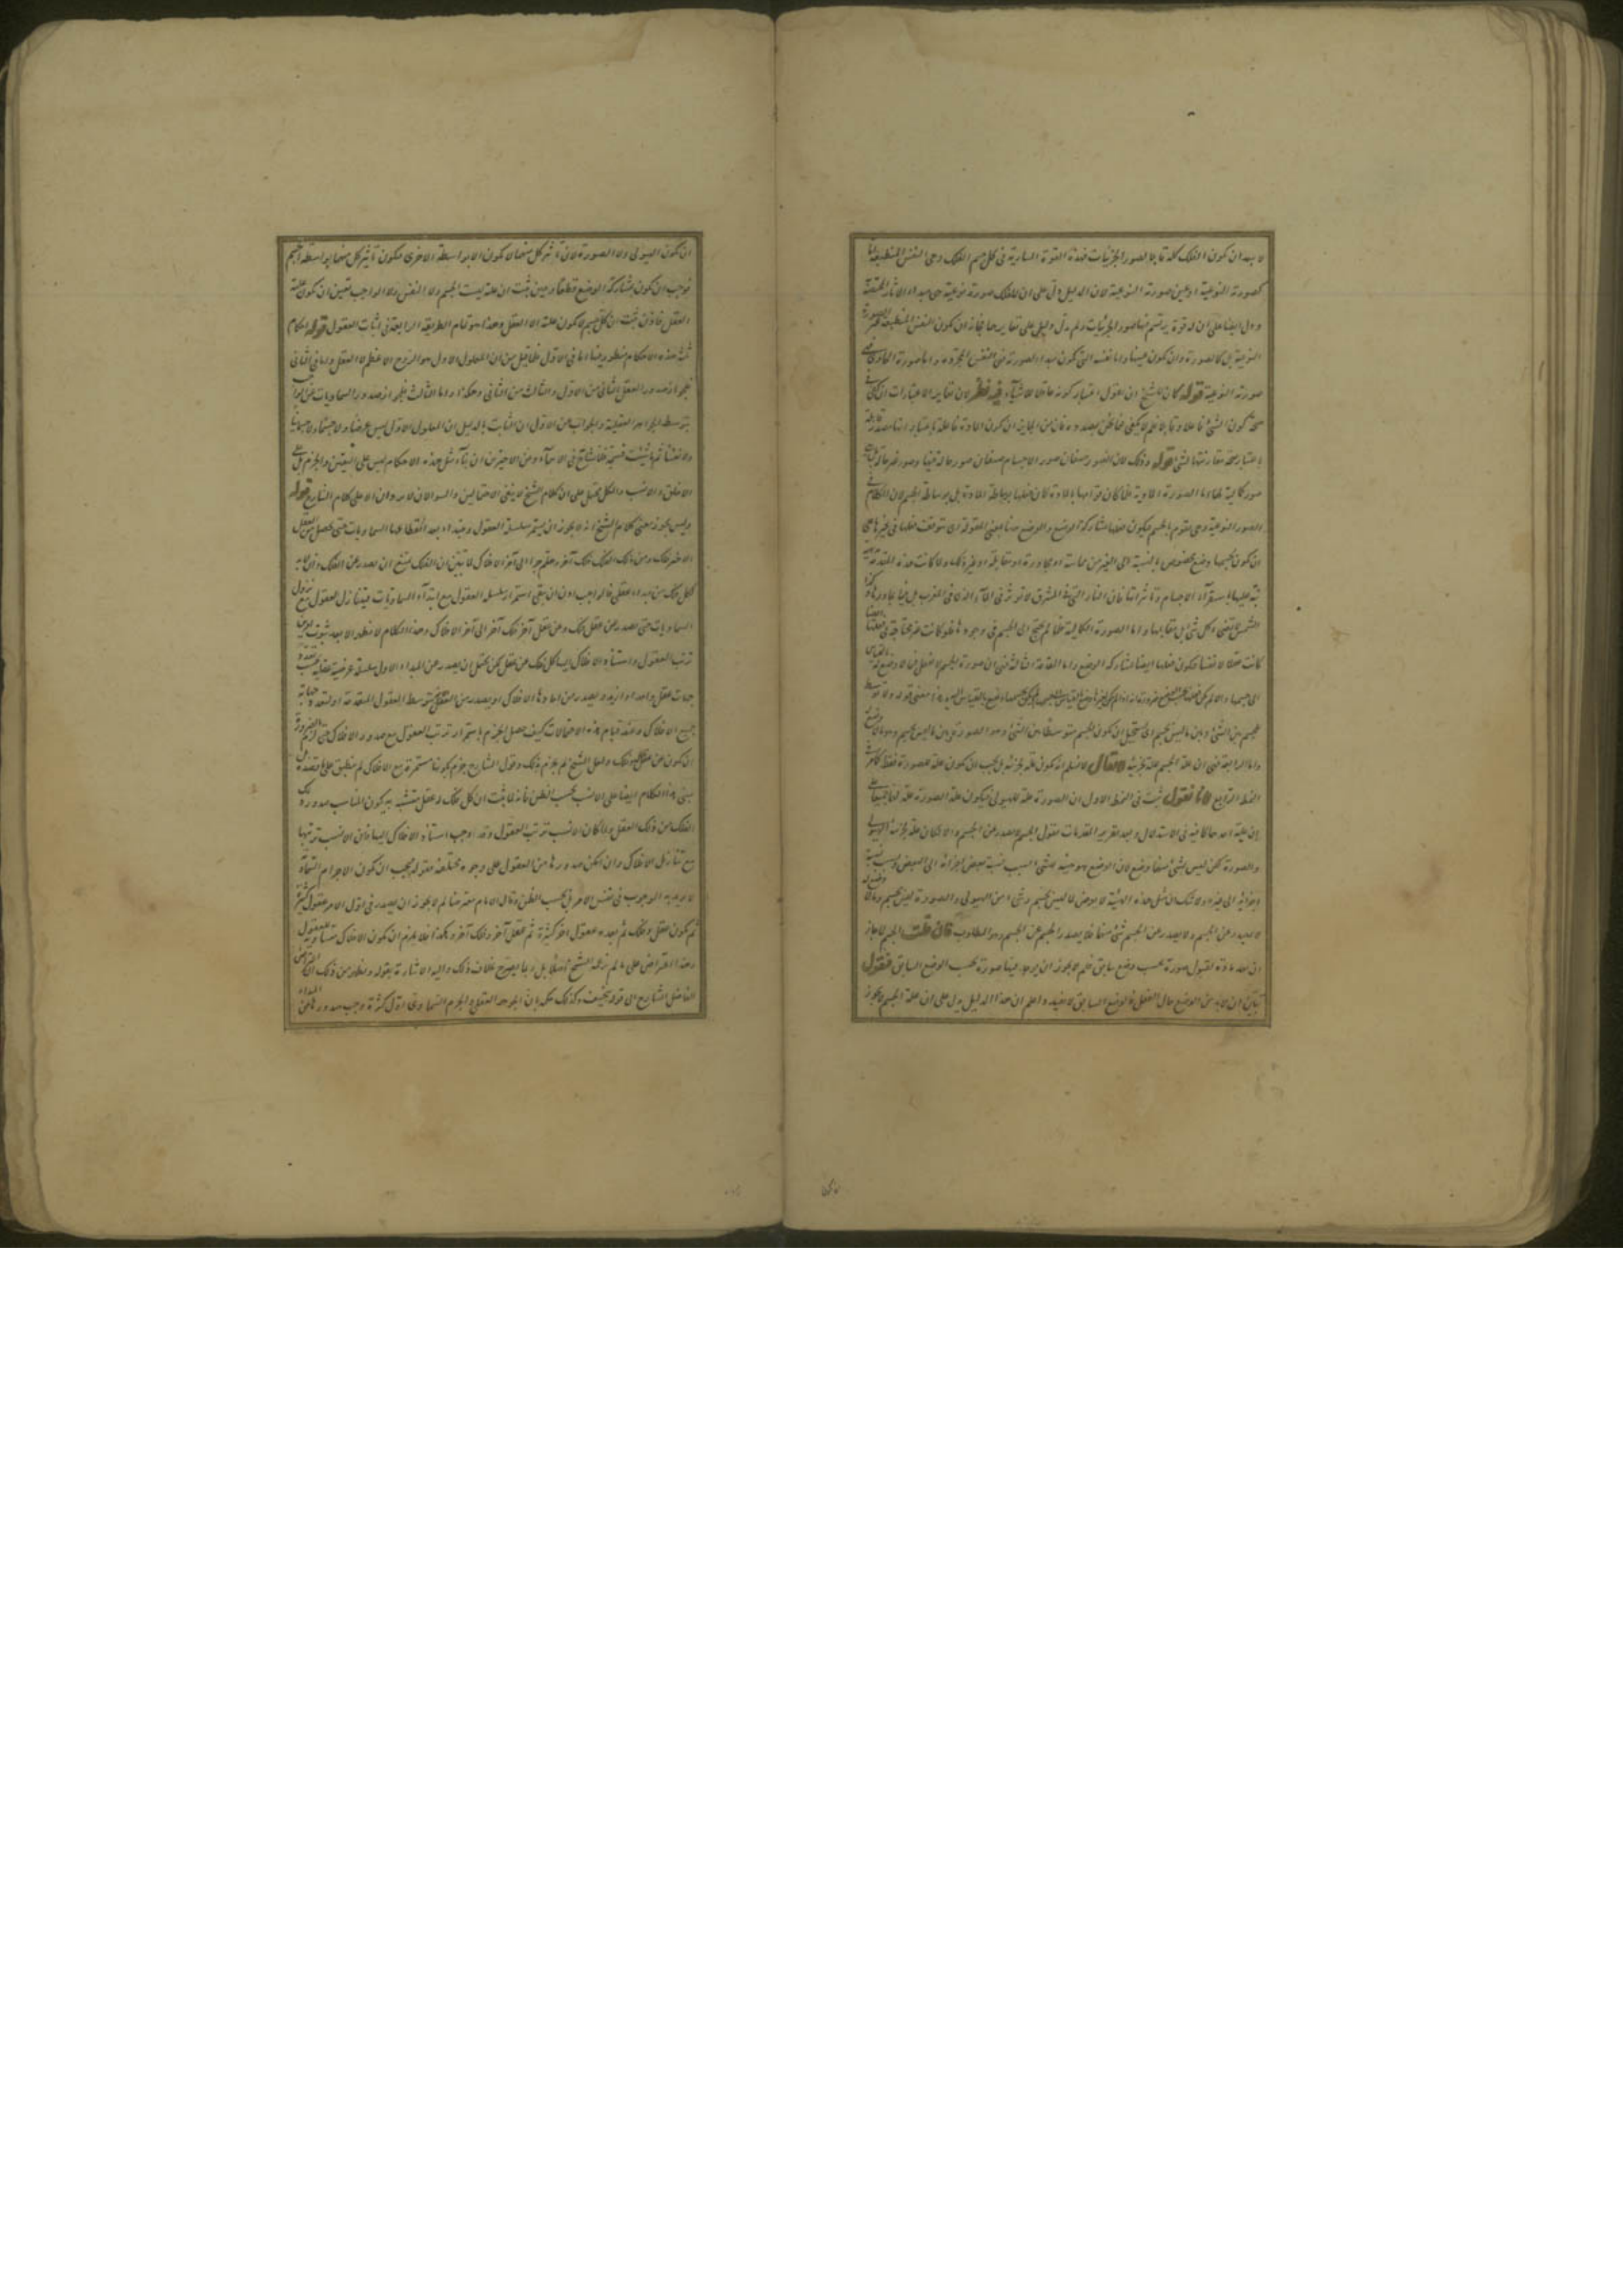 لا بد ان كون الفلك كله قابلا لصور الجزئيات فهذه القوة السارية فى كل جسم الفلك وهى النفس المنطبعة اما
كصورته النوعية او عين صورته النوعية لان الدليل دل على ان للفلك صورة نوعية هى مبدأ الاثار المختصة
ودل ايضا على ان له قوة يرتسم فيها صور الجزئيات ولم يدل دليل على تغايرهما فجاز ان كون النفس المنطبعة
النوعية بل كالصورة وان كون عينها واما نفسه التى كون مبدأ الصورة فهى النفس المجردة واما صورة المادى فهى
صورته النوعية قوله كان للشيخ ان يقول اعتبار كونه عاقلا للاشياء فيه نظر لان تغاير الاعتبارات ان كفى فى
صحة كون الشئ فاعلا وقابلا فلم لا يكفى فيما نحن بصدده فان من الجايز ان كون المادة فاعلة باعتبار
باعتبار صحة مقارنتها لشئ قوله وذلك لان الصور صنفان صور الاجسام صنفان صور حالة فيها وصور غير حالة
صور كمالية لها اما الصورة المادية فلما كان قوامها بالمادة كان فعلها بواسطة المادة بل بوساطة الجسم لان الكلام فى
الصور النوعية وهى تتقوم بالجسم فيكون فعلها بمشاركة الوضع والوضع هنا بمعنى المقولة اى تتوقف فعلها فى غيرها على
ان كون لجسمها وضع مخصوص بالنسبة الى الغير من مماسة او مجاورة او مقابلة او غير ذلك ولما كانت هذه المقدمة
نبه عليها باستقرآء الاجسام وتاثيراتها فان النار التى فى المشرق لا تؤثر فى المآء الذى فى المغرب بل فيما يجاورها وكذا
الشمس لا تضئ كل شئ بل مقابلها واما الصورة الكمالية فلما لم تحتج الى الجسم فى وجودها فلو كانت غير محتاجة فى فعلها ايضا
كانت عقلا لا نفسا فيكون فعلها ايضا بمشاركة الوضع واما المقدمة الثالثة فهى ان صورة الجسم لا تفعل فيما لا وضع له بالقياس
لجسم بين الشئ وبين ما ليس بجسم اى يستحيل ان كون الجسم متوسطا بين الشئ وهو الصورة وبين ما ليس بجسم
واما الرابعة فهى ان علة الجسم علة لجزئيه لا يقال لا نسلم انه كون علة لجزئيه بل يجب ان كون علة للصورة فقط كما مر فى
النمط الرابع لانا نقول ثبت فى النمط الاول ان الصورة علة للهيولى فيكون علة الصورة علة لهما جميعا على
ان علية احدهما كافية فى الاستدلال وبعد تقرير المقدمات نقول الجسم لا يصدر عن الجسم والا لكان علة لجزئيه الهيولى
والصورة لكن ليس لشئ منهما وضع لان الوضع هو هيئة للشئ بسبب نسبة بعض اجزائه الى البعض وبسبب نسبة
اجزائه الى غيره ولا شك ان مثل هذه الهيئة لا يعرض لما ليس بجسم وشئ من الهيولى والصورة ليس بجسم وما لا وضع له
لا يصدر عن الجسم ولا يصدر عن الجسم شئ منهما فلا يصدر الجسم عن الجسم وهو المطلوب فان قلت الجسم لما جاز
ان يعد مادة لقبول صورة بحسب وضع سابق فلم لا يجوز ان يوجد فيها صورة بحسب الوضع السابق فنقول
تبين ان لا بد من الوضع حال الفعل فالوضع السابق لا يفيد واعلم ان هذا الدليل يدل على ان علة الجسم لا يجوز
ان كون الهيولى ولا الصورة لان تاثير كل منهما لا يكون الا بواسطة الاخرى فيكون تاثير كل منهما بواسطة الجسم
فوجب ان كون بمشاركة الوضع قطعا وحين ثبت ان علته ليست الجسم ولا النفس ولا الواجب تعين ان كون علته
العقل فاذن ثبت ان كل جسم لا كون علته الا العقل وهذا هو تمام الطريقة الرابعة فى اثبات العقول قوله احكام
ثلثة هذه الاحكام منظور فيها اما فى الاول فلما قيل من ان المعلول الاول هو الروح الاعظم لا العقل واما فى الثانى
فلجواز صدور العقل الثانى من الاول والثالث من الثانى وهكذا واما الثالث فلجواز صدور السماويات من
بتوسط الجواهر العقلية والجواب عن الاول ان الثابت بالدليل ان المعلول الاول ليس عرضا ولا جسما ولا
ولا نفسا ثم ما شئت فسمه فلا مشاحة فى الاسمآء وعن الاخيرين ان بنآء مثل هذه الاحكام ليس على اليقين والجزم بل على
الاخلق والانسب والكل محتمل على ان كلام الشيخ لا ينفى الاحتمالين والسؤالان لا يردان الا على كلام الشارح قوله
وليس يجوز معنى كلام الشيخ انه لا يجوز ان يستمر سلسلة العقول وتبتدأ بعد انقطاعها السماويات حتى يحصل من العقل
الاخير فلك ومن ذلك الفلك فلك آخر وهلم جرا الى آخر الافلاك لما تبين ان الفلك يمتنع ان يصدر عن الفلك
لكل فلك من مبدأ عقلى فالواجب اذن ان يبقى استمرار سلسلة العقول مع ابتدآء السماويات فيتنازل العقول مع نزول
السماويات حتى يصدر عن عقل فلك وعن عقل آخر فلك آخر الى آخر الافلاك وهذا الكلام لا يظهر الا بعد ثبوت امرين
ترتب العقول واستناد الافلاك اليها كل فلك عن عقل لكن يحتمل ان يصدر عن المبدأ الاول سلسلة عرضية عقلية بحسب تعدد
جهات عقل واحد او ازيد ويصدر من احادها الافلاك او يصدر من العقل الاخير بتوسط العقول المتقدمة او لتعدد جهاته
جميع الافلاك وعند قيام هذه الاحتمالات كيف حصل الجزم باستمرار ترتب العقول مع صدور الافلاك حتى لزم
ان كون عن عقل فلك ولعل الشيخ لم يجزم بذلك وقول الشارح جزم بكونها مستمرة مع الافلاك لم ينطبق على ما قصده
بنى هذا الكلام ايضا على الانسب بحسب الظن فانه لما ثبت ان كل فلك وعقل تشبه به يكون المناسب صدور ذلك
الفلك من ذلك العقل ولما كان الانسب ترتب العقول وقد اوجب استناد الافلاك اليها فمن الانسب ترتبها
مع تنازل الافلاك وان امكن صدورها من العقول على وجوه مختلفة فقوله يجب ان كون الاجرام السماوية
لا يريد به الوجوب فى نفس الامر بل بحسب الظن وقال الامام معترضا لم لا يجوز ان يصدر فى اول الامر عقول كثيرة
ثم يكون عقل وفلك ثم بعده عقول اخر كثيرة ثم عقل آخر وفلك آخر وهكذا فلا يلزم ان كون الافلاك مساوية للعقول
وهذا اعتراض على ما لم يزعمه الشيخ اصلا بل ربما يصرح بخلاف ذلك واليه الاشارة بقوله وظهر من ذلك ان اعتراض
الفاضل الشارح اى قوله بسخيف وكذلك حكمه بان الجوهر العقلى والجرم السماوى اول كثرة وجب صدورها عن المبدأ